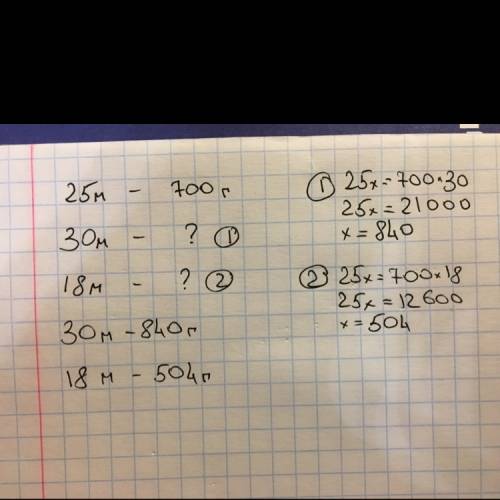 25м - 700г
30м - ? ①
18м - ? ②
30м - 840г
18м - 504г
① 25x = 700·30
25x = 21000
x = 840
② 25x = 700×18
25x = 12600
x = 504